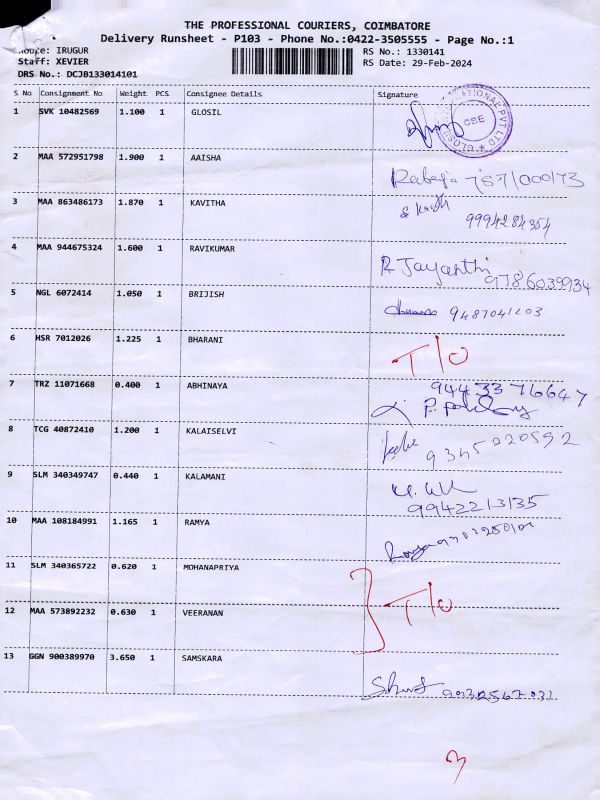 THE PROFESSIONAL COURIERS, COIMBATORE
Delivery Runsheet - P103 - Phone No.:0422-3505555 - Page No.:1
Route: IRUGUR
RS No.: 1330141
Staff: XEVIER
RS Date: 29-Feb-2024
DRS No.: DCJB133014101
S No Consignment No Weight PCS Consignee Details Signature
1 SVK 10482569 1.100 1 GLOSIL
CBE
2 MAA 572951798 1.900 1 AAISHA
3 MAA 863486173 1.870 1 KAVITHA
9994284354
4 MAA 944675324 1.600 1 RAVIKUMAR
R Jayanthi
9786039934
5 NGL 6072414 1.050 1 BRIJISH
9487041203
6 HSR 7012026 1.225 1 BHARANI
T/O
7 TRZ 11071668 0.400 1 ABHINAYA
9443376647
8 TCG 40872410 1.200 1 KALAISELVI
9345220592
9 SLM 340349747 0.440 1 KALAMANI
9942213135
10 MAA 108184991 1.165 1 RAMYA
11 SLM 340365722 0.620 1 MOHANAPRIYA
T/O
12 MAA 573892232 0.630 1 VEERANAN
13 GGN 900389970 3.650 1 SAMSKARA
3